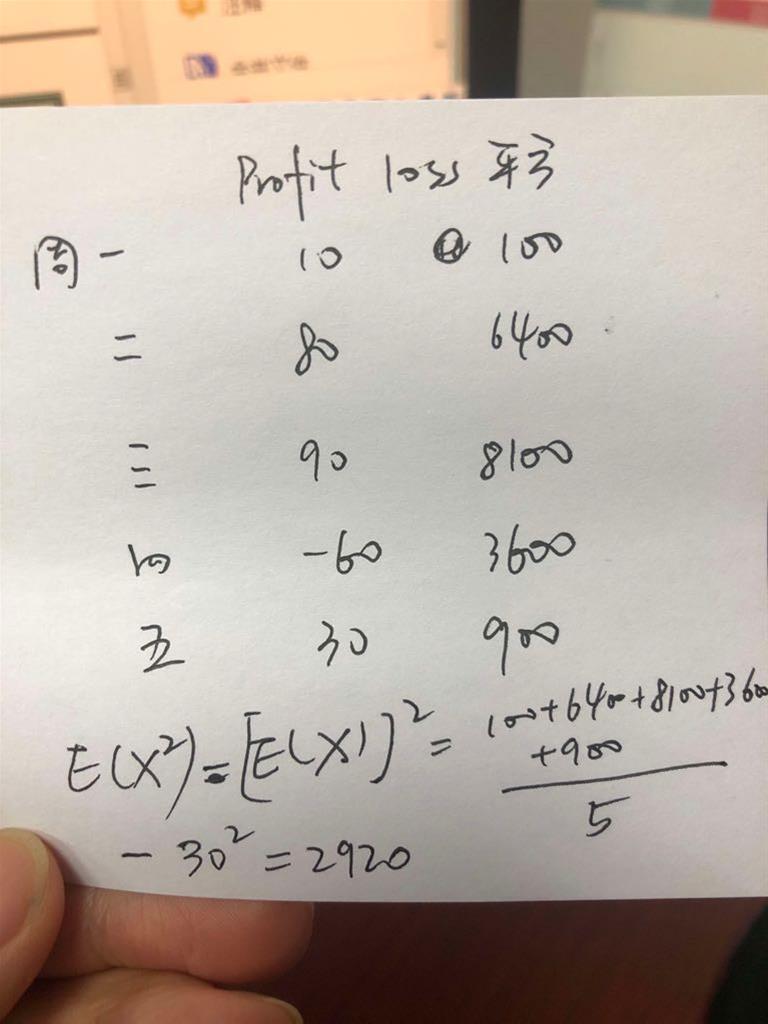 Profit loss 平方
周一 10 100
二 80 6400
三 90 8100
四 -60 3600
五 30 900
E(X²)-[E(X)]² = 100+6400+8100+3600
+900
5
- 30² = 2920